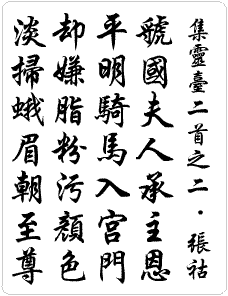 集靈臺二首之二·張祜
虢國夫人承主恩
平明騎馬入宮門
却嫌脂粉污顏色
淡掃蛾眉朝至尊